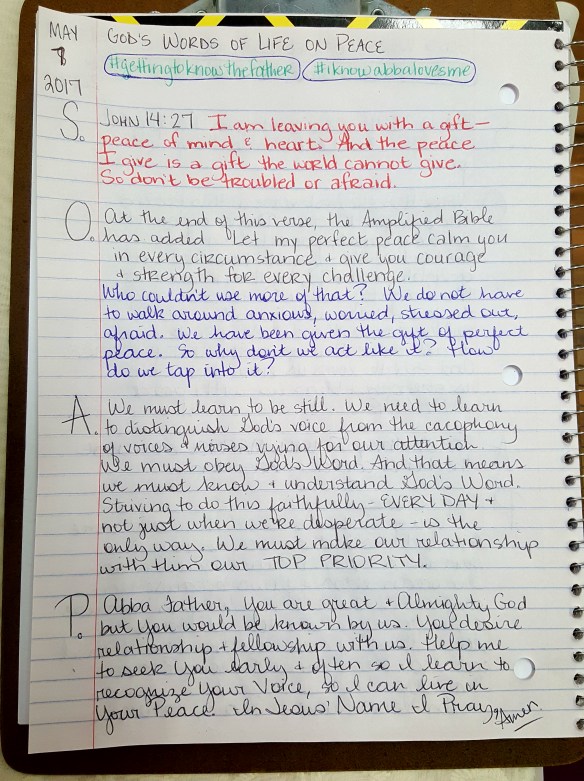 MAY 8 2017
GOD'S WORDS OF LIFE ON PEACE
#gettingtoknowthefather #iknowabbalovesme
S. JOHN 14:27 I am leaving you with a gift —
peace of mind & heart. And the peace
I give is a gift the world cannot give.
So don't be troubled or afraid.
O. At the end of this verse, the Amplified Bible
has added "Let my perfect peace calm you
in every circumstance + give you courage
+ strength for every challenge.
Who couldn't use more of that? We do not have
to walk around anxious, worried, stressed out,
afraid. We have been given the gift of perfect
peace. So why don't we act like it? How
do we tap into it?
A. We must learn to be still. We need to learn
to distinguish God's voice from the cacophony
of voices + noises vying for our attention.
We must obey God's Word. And that means
we must know + understand God's Word.
Striving to do this faithfully - EVERY DAY +
not just when we're desperate - is the
only way. We must make our relationship
with Him our TOP PRIORITY.
P. Abba Father, You are great + Almighty God
but You would be known by us. You desire
relationship + fellowship with us. Help me
to seek You early + often so I learn to
recognize Your Voice, so I can live in
Your Peace. In Jesus' Name I Pray, Amen